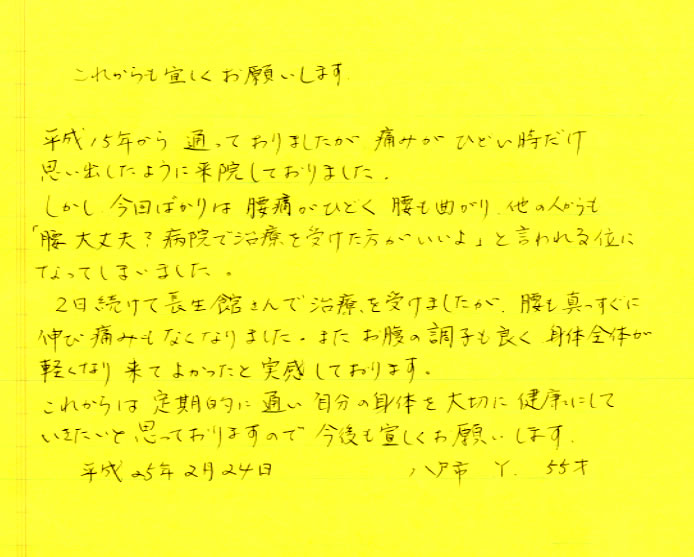 これからも宜しくお願いします.
平成15年から 通っておりましたが 痛みが ひどい時だけ
思い出したように来院しておりました.
しかし 今回ばかりは 腰痛がひどく 腰も曲がり、他の人からも
「腰 大丈夫?病院で治療を受けた方がいいよ」と言われる位に
なってしまいました。
2日続けて長生館さんで治療を受けましたが、腰も真っすぐに
伸び痛みもなくなりました。また お腹の調子も良く 身体全体が
軽くなり 来てよかったと実感しております。
これからは 定期的に通い 自分の身体を大切に健康にして
いきたいと思っておりますので 今後も宜しくお願いします.
平成25年2月24日 八戸市 Y. 55才